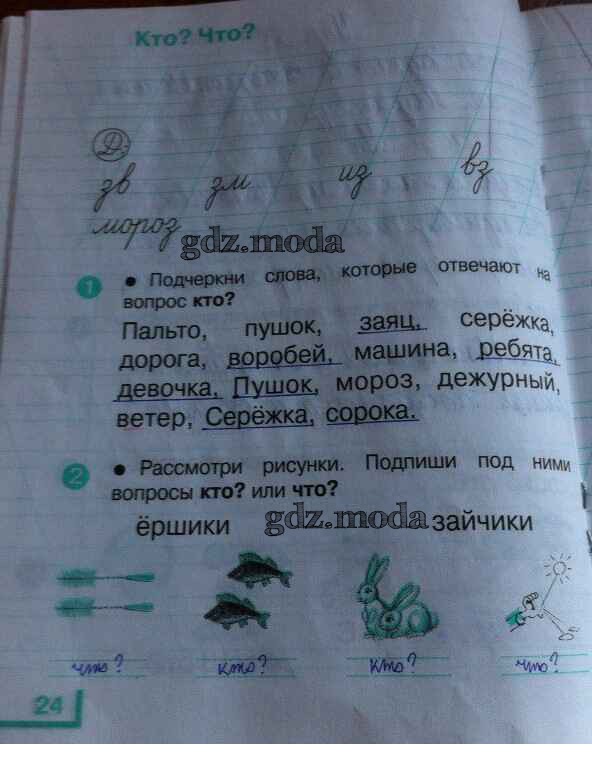 Кто? Что?
Д
зв зм из вз
мороз
gdz.moda
1 • Подчеркни слова, которые отвечают на
вопрос кто?
Пальто, пушок, заяц, серёжка,
дорога, воробей, машина, ребята,
девочка, Пушок, мороз, дежурный,
ветер, Серёжка, сорока.
2 • Рассмотри рисунки. Подпиши под ними
вопросы кто? или что?
ёршики gdz.moda зайчики
что? кто? кто? что?
24